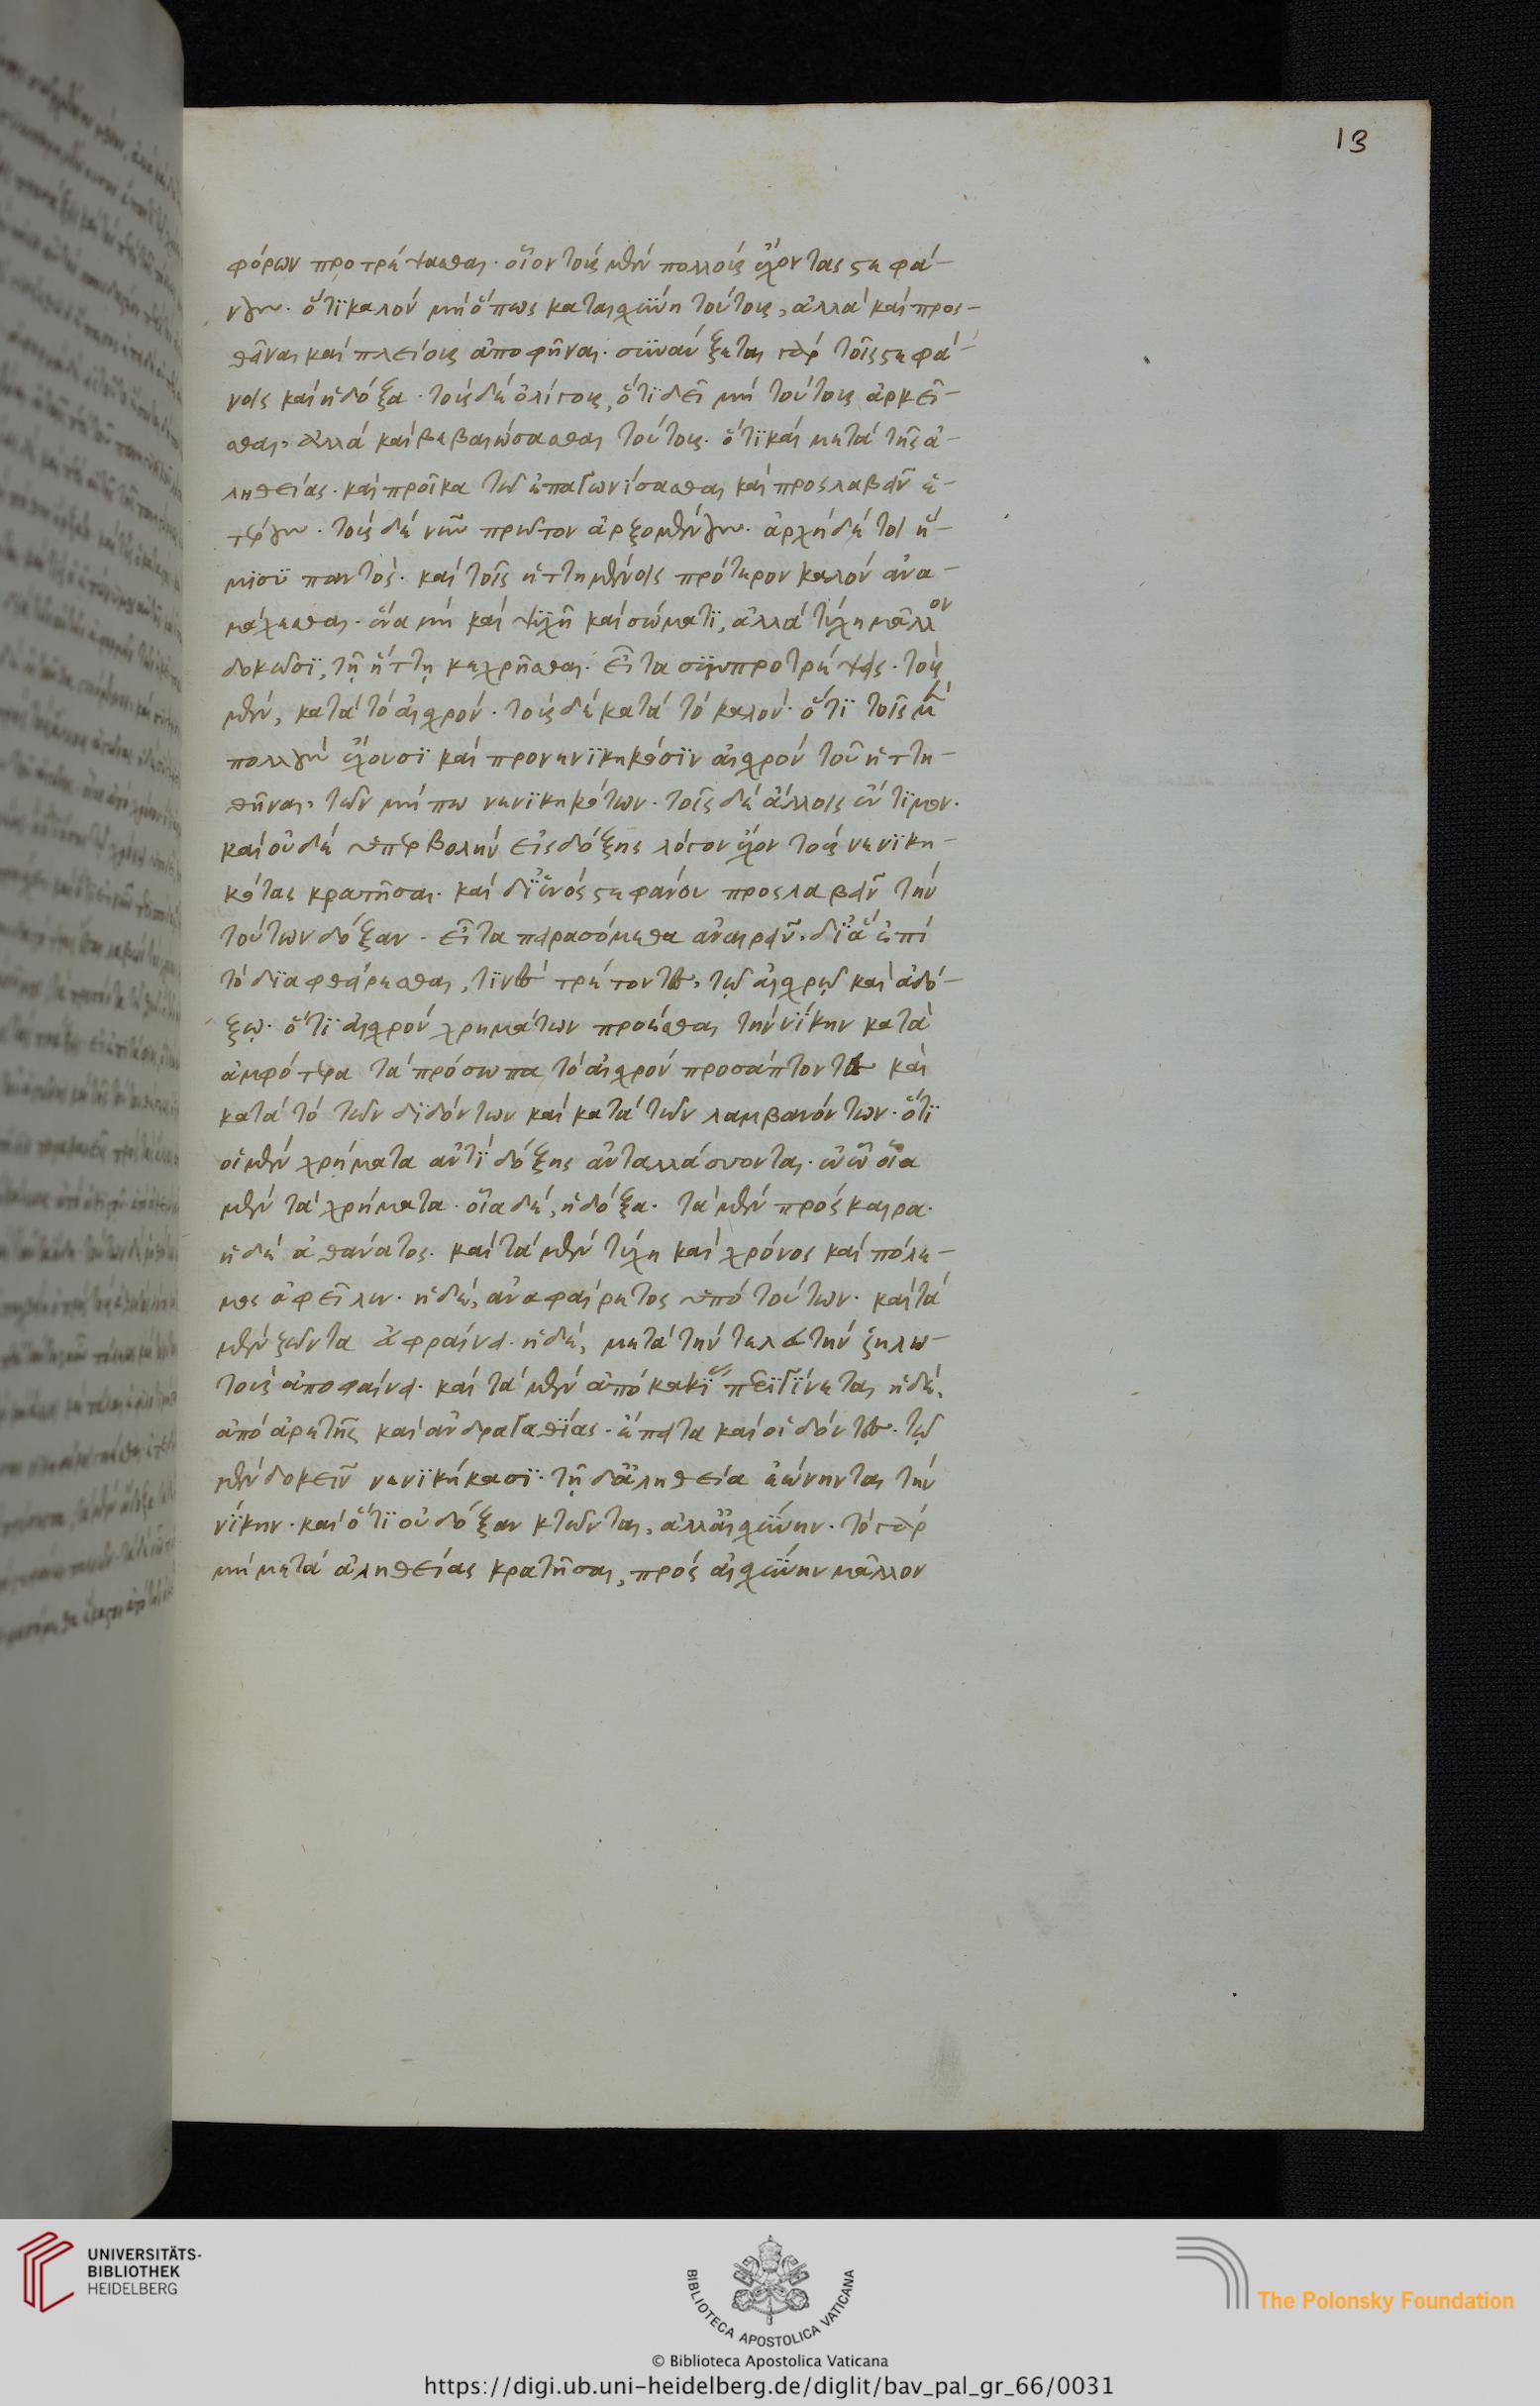 13
φόρων προτρέψασθαι· οἷον τοὺς μὲν πολλοὺς ἔχοντας στεφά-
νους· ὅτι καλὸν μὴ ὅπως καταισχύνῃ τούτους, ἀλλὰ καὶ προσ-
θεῖναι καὶ πλείους ἀποφῆναι· συναύξεται γὰρ τοῖς στεφά-
νοις καὶ ἡ δόξα· τοὺς δὲ ὀλίγους, ὅτι δεῖ μὴ τούτοις ἀρκεῖ-
σθαι, ἀλλὰ καὶ βεβαιώσασθαι τούτους· ὅτι καὶ μετὰ τῆς ἀ-
ληθείας· καὶ προῖκα τῷ ἐπαγωνίσασθαι καὶ προσλαβεῖν ἑ-
τέρους· τοὺς δὲ νῦν πρῶτον ἀρξομένους· ἀρχὴ δέ τοι ἥ-
μισυ παντός· καὶ τοῖς ἡττημένοις πρότερον καλὸν ἀνα-
μάχεσθαι· ἵνα μὴ καὶ ψυχῇ καὶ σώματι, ἀλλὰ τύχῃ μᾶλλον
δοκῶσι, τῇ ἥττῃ κεχρῆσθαι· εἶτα συμπροτρέψεις· τοὺς
μὲν, κατὰ τὸ αἰσχρόν· τοὺς δὲ κατὰ τὸ καλόν· ὅτι τοῖς μὲν
πολλοὺς ἔχουσι καὶ προνενικηκόσιν αἰσχρὸν τοῦ ἡττη-
θῆναι, τῶν μήπω νενικηκότων· τοῖς δὲ ἄλλοις ἔντιμον·
καὶ οὐδὲ ὑπερβολὴν εἰς δόξης λόγον ἔχον τοὺς νενικη-
κότας κρατῆσαι· καὶ δι' ἑνὸς στεφάνου προσλαβεῖν τὴν
τούτων δόξαν· εἶτα πειρασόμεθα ἀναιρεῖν, δι' ἃ ἐπὶ
τὸ διαφθείρεσθαι, τινὲς τρέπονται, τῷ αἰσχρῷ καὶ ἀδό-
ξῳ· ὅτι αἰσχρὸν χρημάτων προέσθαι τὴν νίκην κατὰ
ἀμφότερα τὰ πρόσωπα τὸ αἰσχρὸν προσάπτοντες καὶ
κατὰ τὸ τῶν διδόντων καὶ κατὰ τῶν λαμβανόντων· ὅτι
οἱ μὲν χρήματα ἀντὶ δόξης ἀνταλλάσσονται· ἐν ᾧ οἷα
μὲν τὰ χρήματα· οἷα δὲ, ἡ δόξα· τὰ μὲν πρόσκαιρα·
ἡ δὲ ἀθάνατος· καὶ τὰ μὲν τύχη καὶ χρόνος καὶ πόλε-
μος ἀφεῖλεν· ἡ δὲ, ἀναφαίρετος ὑπὸ τούτων· καὶ τὰ
μὲν ζῶντα εὐφραίνει· ἡ δὲ, μετὰ τὴν τελευτὴν ζηλω-
τοὺς ἀποφαίνει· καὶ τὰ μὲν ἀπὸ κακίας περιγίνεται ἡ δὲ,
ἀπὸ ἀρετῆς καὶ ἀνδραγαθίας· ἔπειτα καὶ οἱ δόντες· τῷ
μὲν δοκεῖν νενικήκασι· τῇ δ' ἀληθείᾳ ἐώνηνται τὴν
νίκην· καὶ ὅτι οὐ δόξαν κτῶνται, ἀλλ' αἰσχύνην· τὸ γὰρ
μὴ μετὰ ἀληθείας κρατῆσαι, πρὸς αἰσχύνην μᾶλλον
UNIVERSITÄTS-
BIBLIOTHEK
HEIDELBERG
BIBLIOTECA APOSTOLICA VATICANA
The Polonsky Foundation
© Biblioteca Apostolica Vaticana
https://digi.ub.uni-heidelberg.de/diglit/bav_pal_gr_66/0031